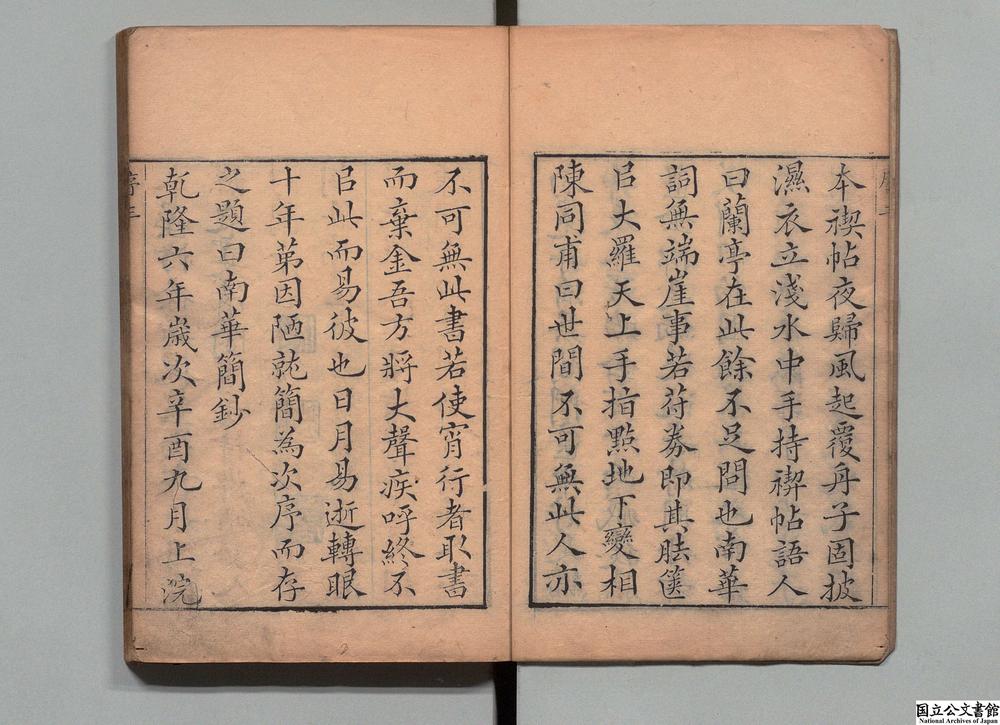 本禊帖夜歸風起覆舟子固披
濕衣立淺水中手持禊帖語人
曰蘭亭在此餘不足問也南華
詞無端崖事若苻券即其胠篋
㠯大羅天上手指點地下變相
陳同甫曰世間不可無此人亦
不可無此書若使宵行者取書
而棄金吾方將大聲疾呼終不
㠯此而易彼也日月易逝轉眼
十年苐因陋就簡為次序而存
之題曰南華簡鈔
乾隆六年歲次辛酉九月上浣
国立公文書館
National Archives of Japan